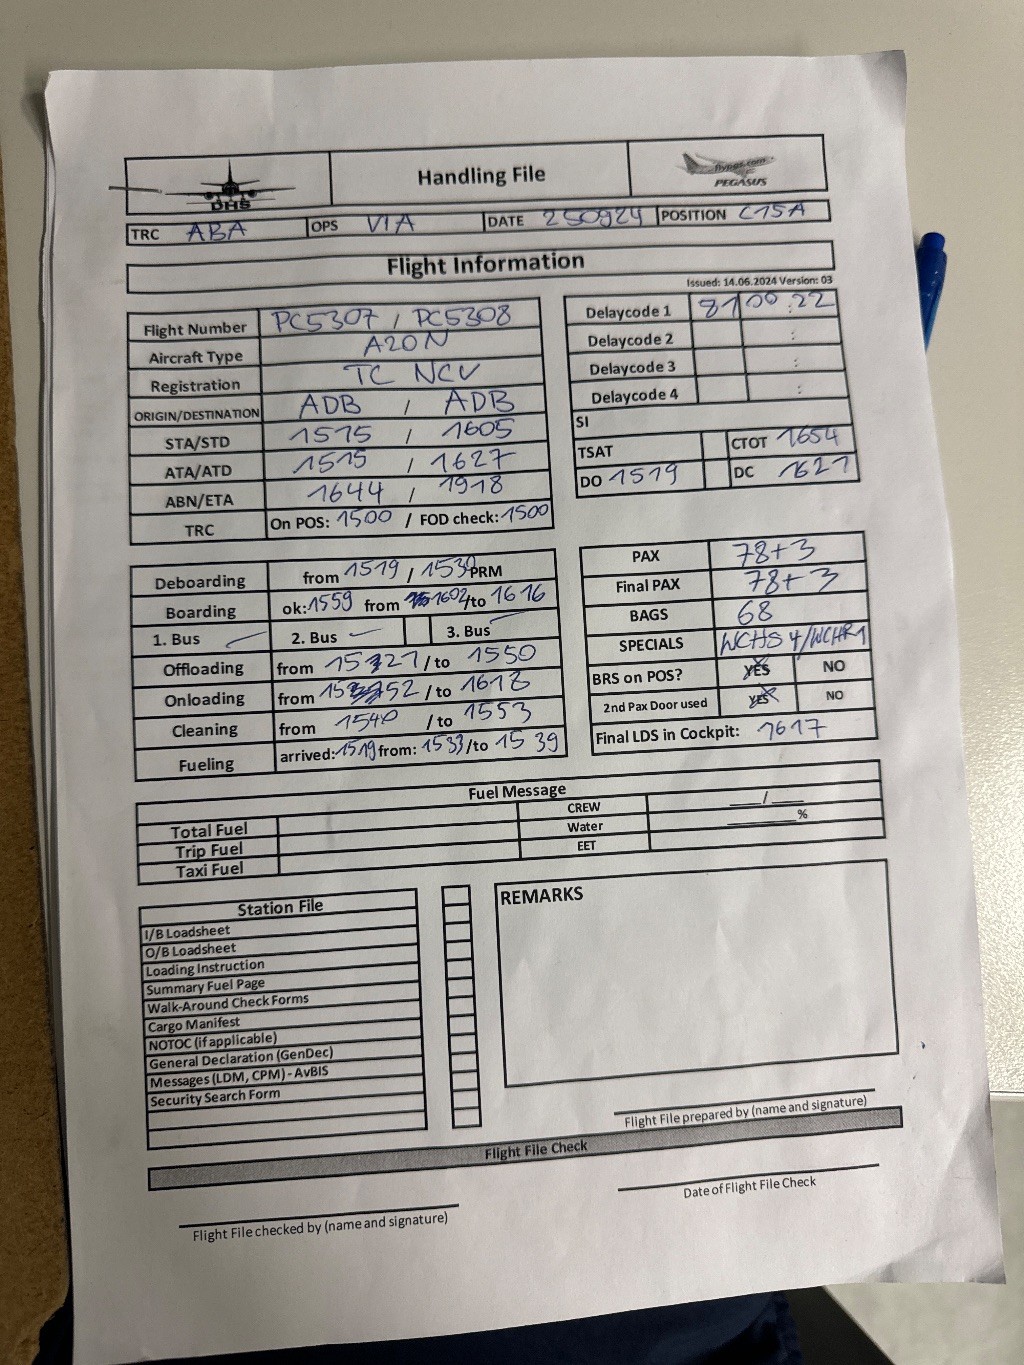 DHS
Handling File
flypgs.com
PEGASUS
TRC ABA OPS VIA DATE 250924 POSITION C15A
Flight Information
Issued: 14.06.2024 Version: 03
Flight Number PC5307 / PC5308
Aircraft Type A20N
Registration TC NCV
ORIGIN/DESTINATION ADB / ADB
STA/STD 1515 / 1605
ATA/ATD 1515 / 1627
ABN/ETA 1644 / 1918
TRC On POS: 1500 / FOD check: 1500
Delaycode 1 81 00:22
Delaycode 2 :
Delaycode 3 :
Delaycode 4 :
SI
TSAT CTOT 1654
DO 1519 DC 1621
Deboarding from 1519 / 1530 PRM
Boarding ok: 1559 from 1602 /to 1616
1. Bus 2. Bus 3. Bus
Offloading from 1527 /to 1550
Onloading from 1552 /to 1612
Cleaning from 1540 /to 1553
Fueling arrived: 1519 from: 1533 /to 1539
PAX 78+3
Final PAX 78+3
BAGS 68
SPECIALS WCHS 4/WCHR1
BRS on POS? YES NO
2nd Pax Door used YES NO
Final LDS in Cockpit: 1617
Fuel Message
Total Fuel CREW ___/___
Trip Fuel Water ______%
Taxi Fuel EET
Station File
I/B Loadsheet
O/B Loadsheet
Loading Instruction
Summary Fuel Page
Walk-Around Check Forms
Cargo Manifest
NOTOC (if applicable)
General Declaration (GenDec)
Messages (LDM, CPM) - AvBIS
Security Search Form
REMARKS
Flight File prepared by (name and signature)
Flight File Check
Flight File checked by (name and signature)
Date of Flight File Check